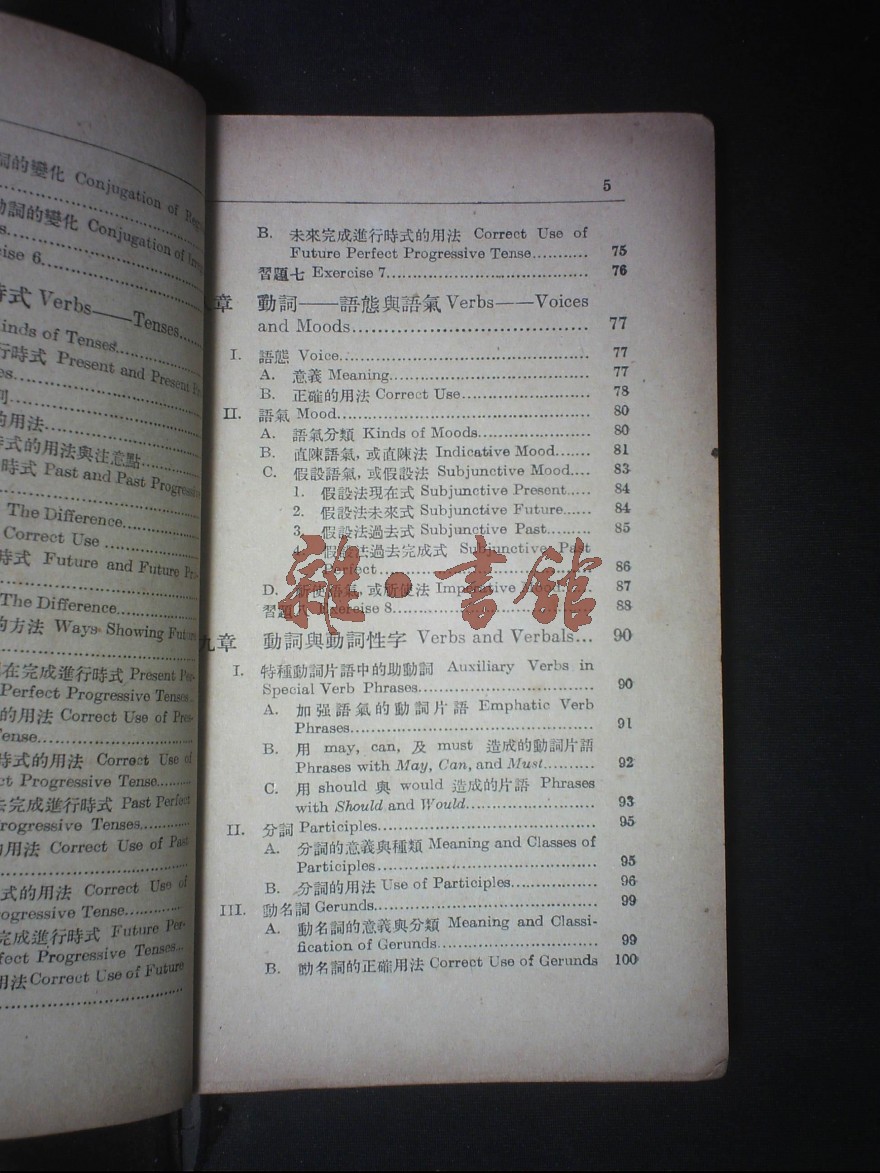 詞的變化 Conjugation of
動詞的變化 Conjugation of
6
時式 Verbs——Tenses
Kinds of Tenses
行時式 Present and Present
的用法
時式的用法與注意點
時式 Past and Past
The Difference
Correct Use
時式 Future and Future
The Difference
的方法 Ways Showing
在完成進行時式 Present Per-
Perfect Progressive Tenses
的用法 Correct Use of Pres-
時式的用法 Correct Use of
Progressive Tense
去完成進行時式 Past Perfect
Progressive Tenses
用法 Correct Use of Past
式的用法 Correct Use of
Tense
完成進行時式 Future Per-
Progressive Tenses
用法 Correct Use of Future
5
B. 未來完成進行時式的用法 Correct Use of
Future Perfect Progressive Tense............ 75
習題七 Exercise 7.................................... 76
章 動詞——語態與語氣 Verbs——Voices
and Moods.................................... 77
I. 語態 Voice.......................................... 77
A. 意義 Meaning................................... 77
B. 正確的用法 Correct Use........................ 78
II. 語氣 Mood.......................................... 80
A. 語氣分類 Kinds of Moods..................... 80
B. 直陳語氣, 或直陳法 Indicative Mood....... 81
C. 假設語氣, 或假設法 Subjunctive Mood.... 83
1. 假設法現在式 Subjunctive Present..... 84
2. 假設法未來式 Subjunctive Future...... 84
3. 假設法過去式 Subjunctive Past......... 85
4. 假設法過去完成式 Subjunctive Past
Perfect....................................... 86
D. 祈使語氣, 或祈使法 Imperative Mood...... 87
習題八 Exercise 8................................... 88
雜·書館
九章 動詞與動詞性字 Verbs and Verbals... 90
I. 特種動詞片語中的助動詞 Auxiliary Verbs in
Special Verb Phrases............................ 90
A. 加强語氣的動詞片語 Emphatic Verb
Phrases.......................................... 91
B. 用 may, can, 及 must 造成的動詞片語
Phrases with May, Can, and Must.......... 92
C. 用 should 與 would 造成的片語 Phrases
with Should and Would....................... 93
II. 分詞 Participles..................................... 95
A. 分詞的意義與種類 Meaning and Classes of
Participles....................................... 95
B. 分詞的用法 Use of Participles.................. 96
III. 動名詞 Gerunds..................................... 99
A. 動名詞的意義與分類 Meaning and Classi-
fication of Gerunds............................. 99
B. 動名詞的正確用法 Correct Use of Gerunds 100